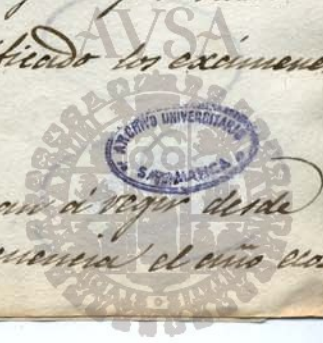 AVSA
ticado los exámene
ARCHIVO UNIVERSITARIO
SALAMANCA
an á regir desde
cuencia el año